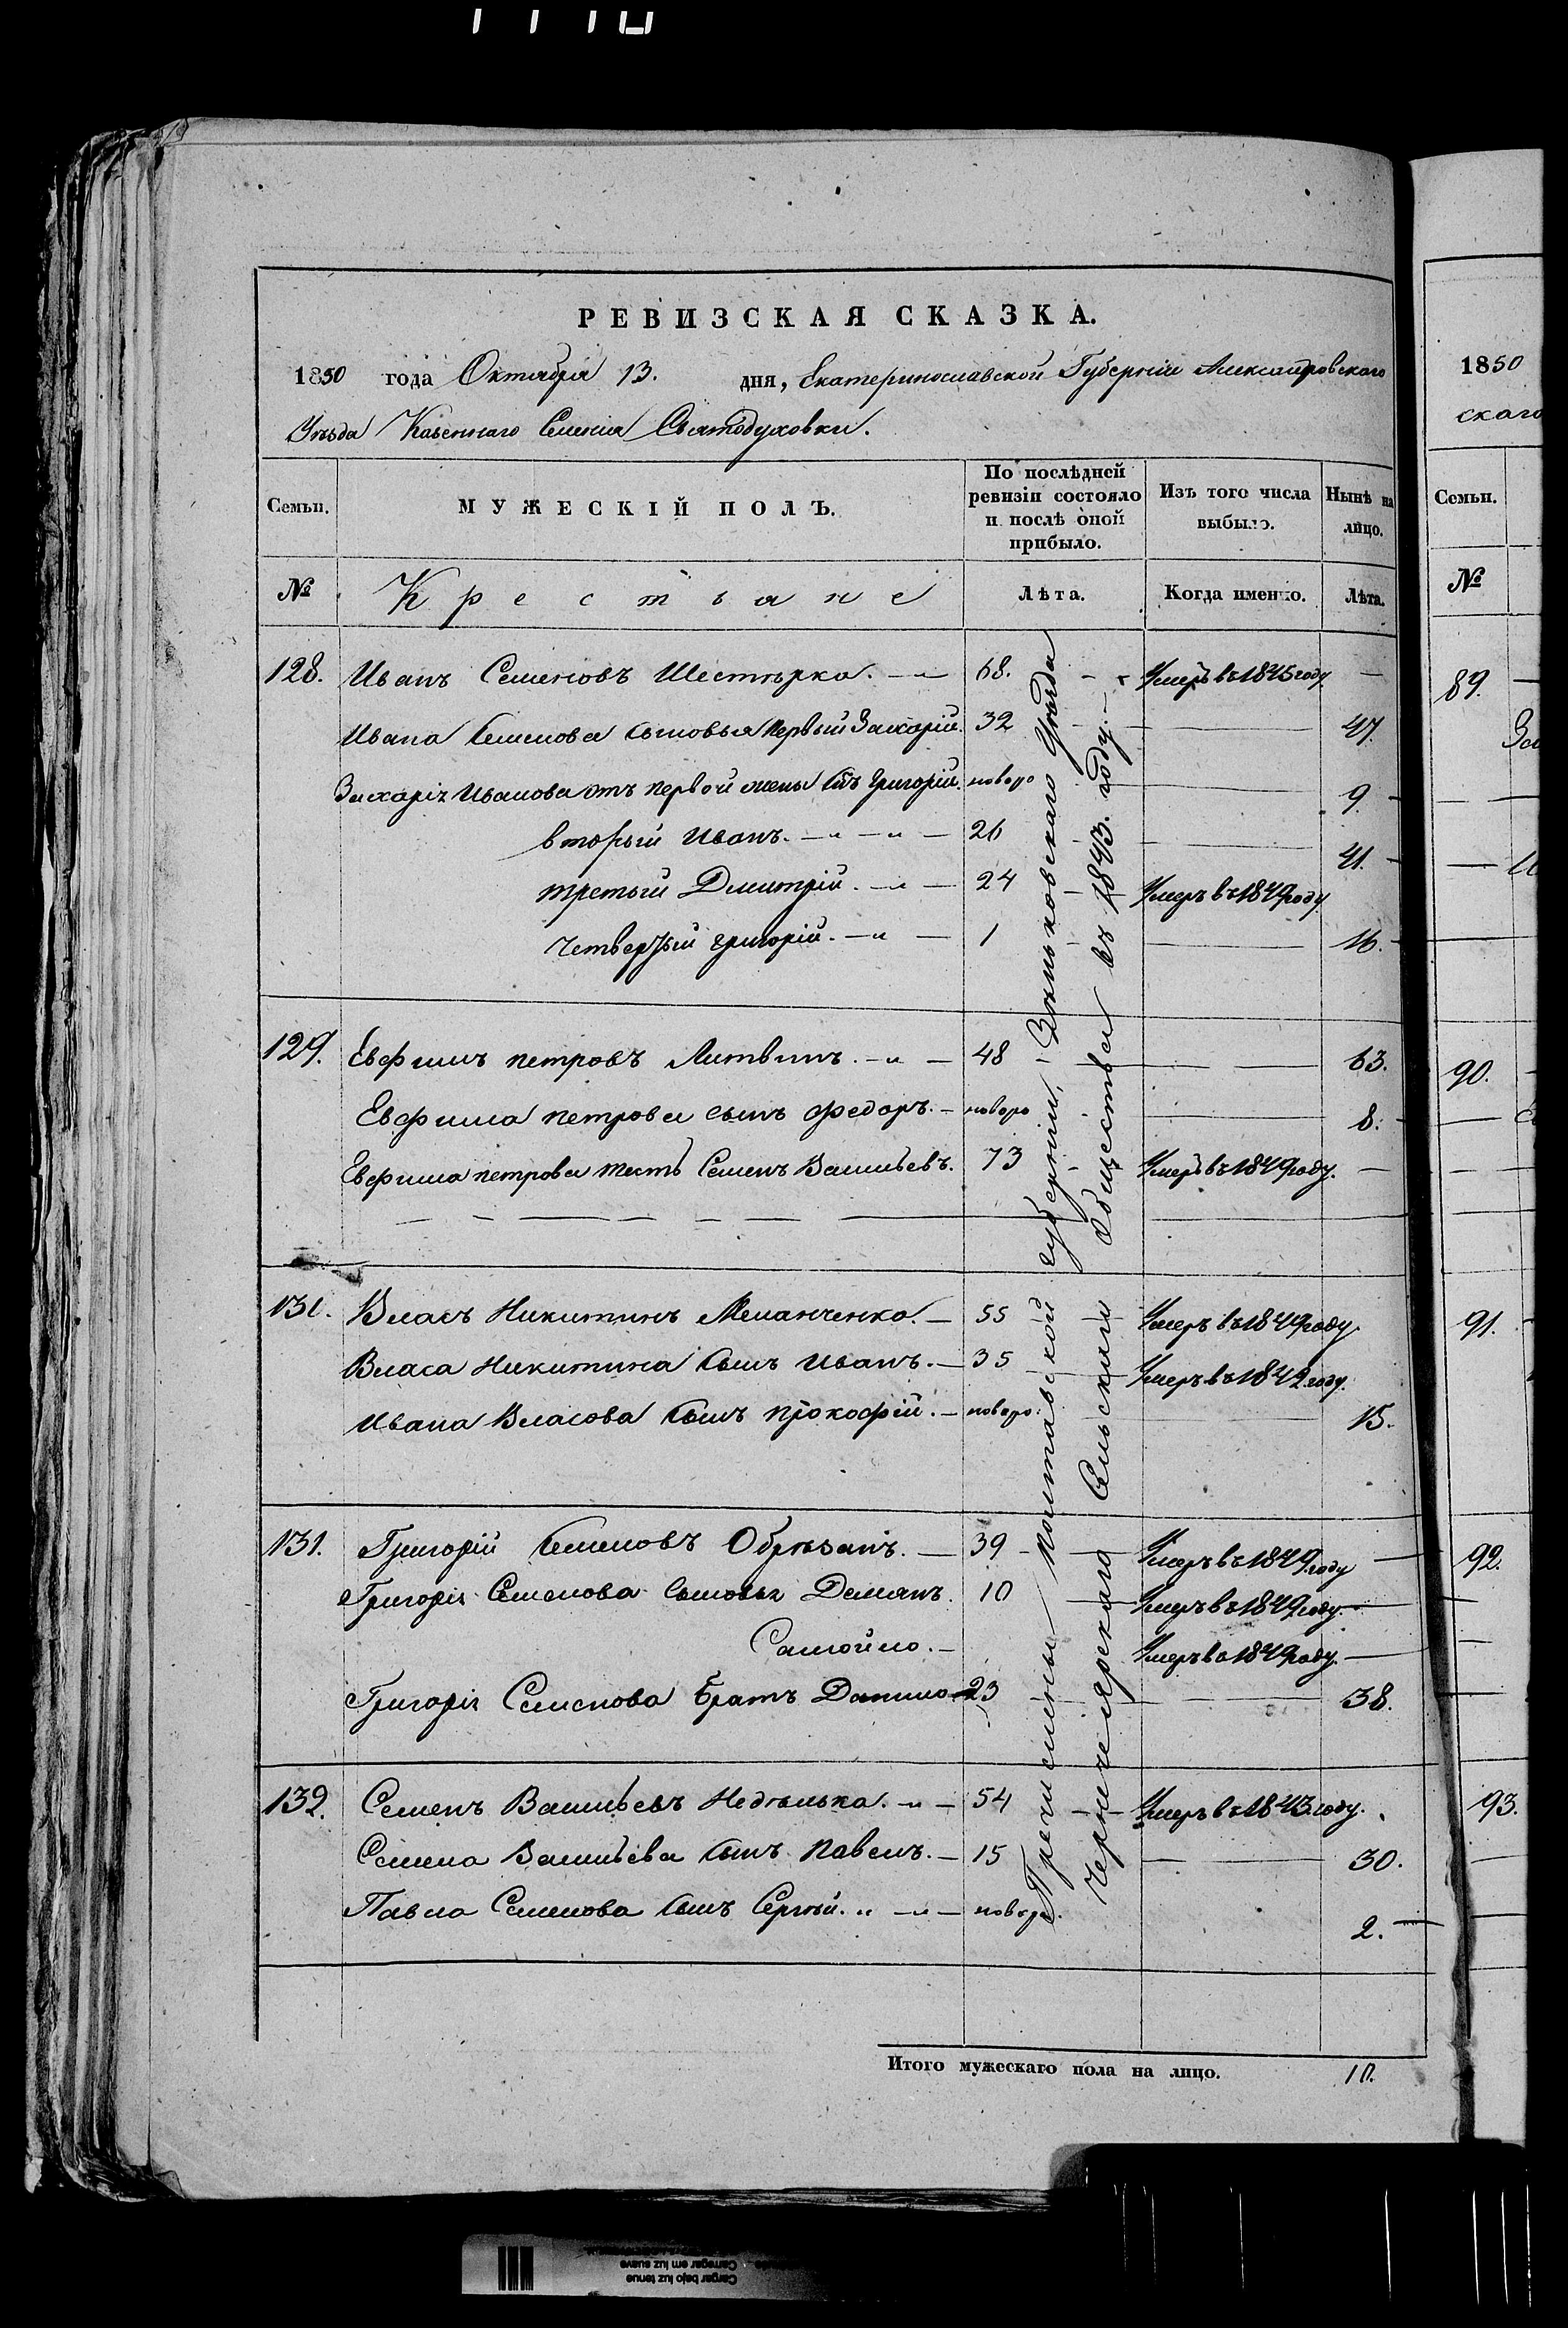 РЕВИЗСКАЯ СКАЗКА.
1850 года Октября 13. дня, Екатеринославской Губерніи Александровскаго
Уѣзда Казеннаго Селенія Святодуховки.
Семьи. МУЖЕСКІЙ ПОЛЪ. По послѣдней ревизіи состояло и послѣ оной прибыло. Изъ того числа выбыло. Нынѣ на лицо.
№ Крестьяне Лѣта. Когда именно. Лѣта.
128. Иванъ Семеновъ Шестѣрка. 68. Умеръ въ 1845 году —
Ивана Семенова сыновья первый Захарій. 32 — 47.
Захарія Иванова отъ первой жены сынъ Григорій. новоро — 9.
вторый Иванъ. 26 — 41.
третьий Димитрій. 24 Умеръ въ 1849 году
четвертый Григорій. 1 — 16.
129. Евфимъ Петровъ Литвинъ. 48 — 63.
Евфима Петрова сынъ Федоръ. новоро — 8.
Евфима Петрова тесть Семенъ Васильевъ. 73 Умеръ въ 1849 году. —
130. Власъ Никитинъ Меланченко. 55 Умеръ въ 1849 году
Власа Никитина сынъ Иванъ. 35 Умеръ въ 1842 году.
Ивана Власова сынъ Прокофій. новоро: 15.
131. Григорій Семеновъ Обрѣзанъ. 39 Умеръ въ 1849 году —
Григорія Семенова сыновья Демянъ. 10 Умеръ въ 1849 году. —
Самойло. Умеръ въ 1849 году. —
Григорія Семенова братъ Данило 23 — 38.
132. Семенъ Васильевъ Недѣлька. 54 Умеръ въ 1843 году.
Семена Васильева сынъ Павелъ. 15 — 30.
Павла Семенова сынъ Сергѣй. новор. 2.
Причислены Полтавской губерніи, Зѣньковскаго Уѣзда
Сельскаго Общества въ 1843. году.
Итого мужескаго пола на лицо. 10.
1850
скаго
Семьи.
№
89.
90.
91.
92.
93.